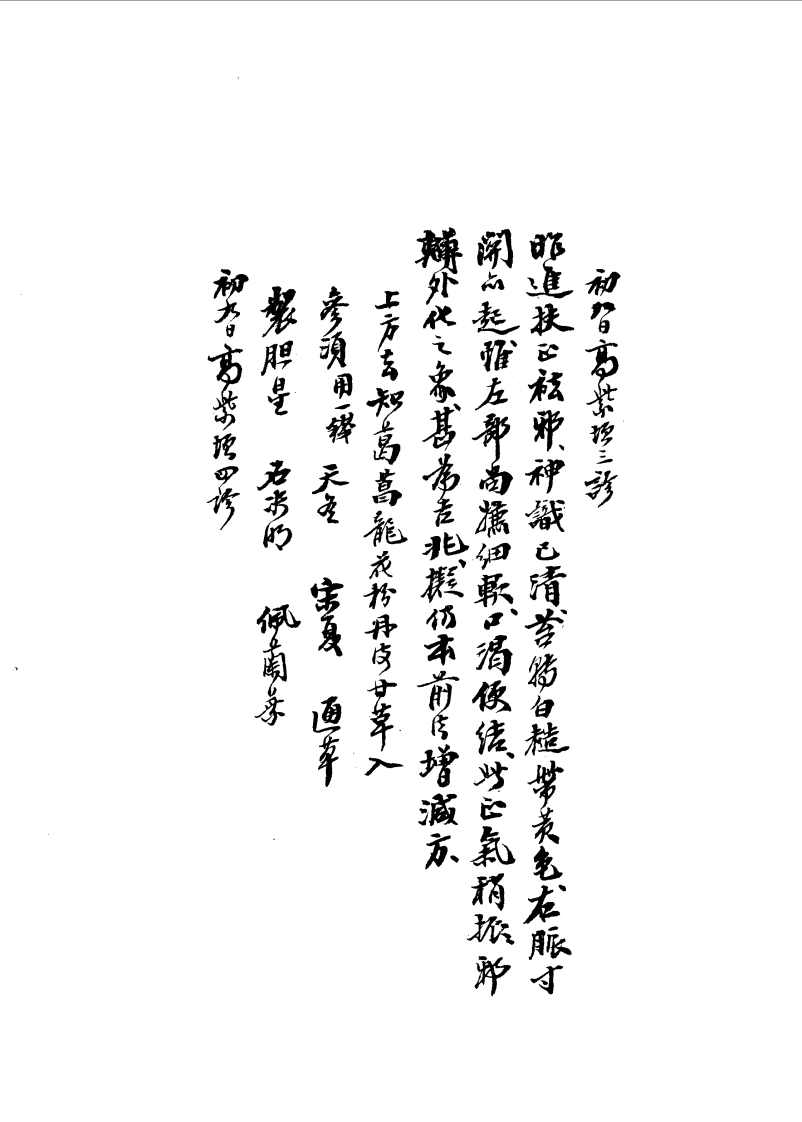 初九日高紫垣三診
昨進扶正祛邪、神識已清、苔轉白糙帶黃色、右脈寸
關亦起、惟左部尚攜細軟、口渴便結、此正氣稍振、邪
轉外化之象、甚為吉兆、擬仍本前法增減方、
上方去知葛菖龍花粉丹皮甘草入
參須用一錢 天冬 宋夏 通草
製胆星 石决明 佩蘭葉
初九日高紫垣四診